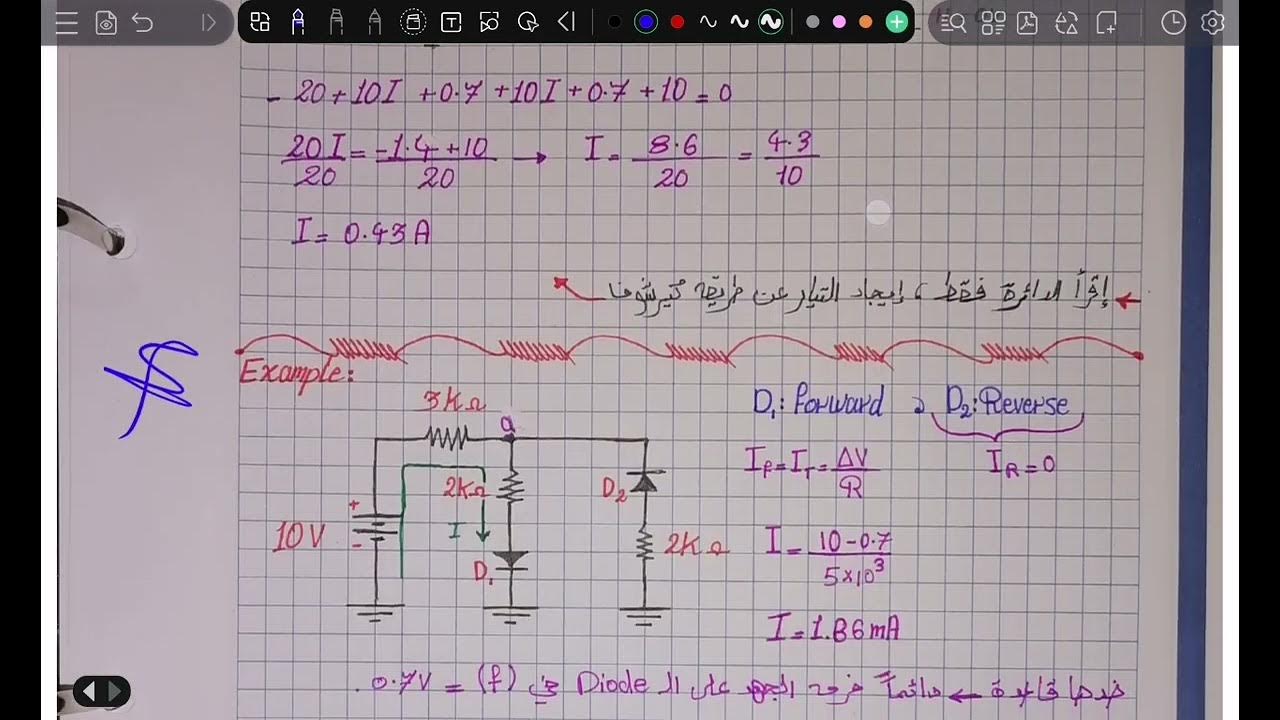 - 20 + 10I + 0.7 + 10I + 0.7 + 10 = 0
20I/20 = -1.4 + 10/20 → I = 8.6/20 = 4.3/10
I = 0.43 A
إقرأ الدائرة فقط، إيجاد التيار عن طريقة كيرشوف
Example:
3KΩ
a
2KΩ
I
D₁
10V
+
-
D₂
2KΩ
D₁: Forward , D₂: Reverse
I_F = I_T = ΔV/R
I_R = 0
I = 10 - 0.7/5×10³
I = 1.86 mA
دائماً فرق الجهد على الـ Diode في (f) = 0.7V.